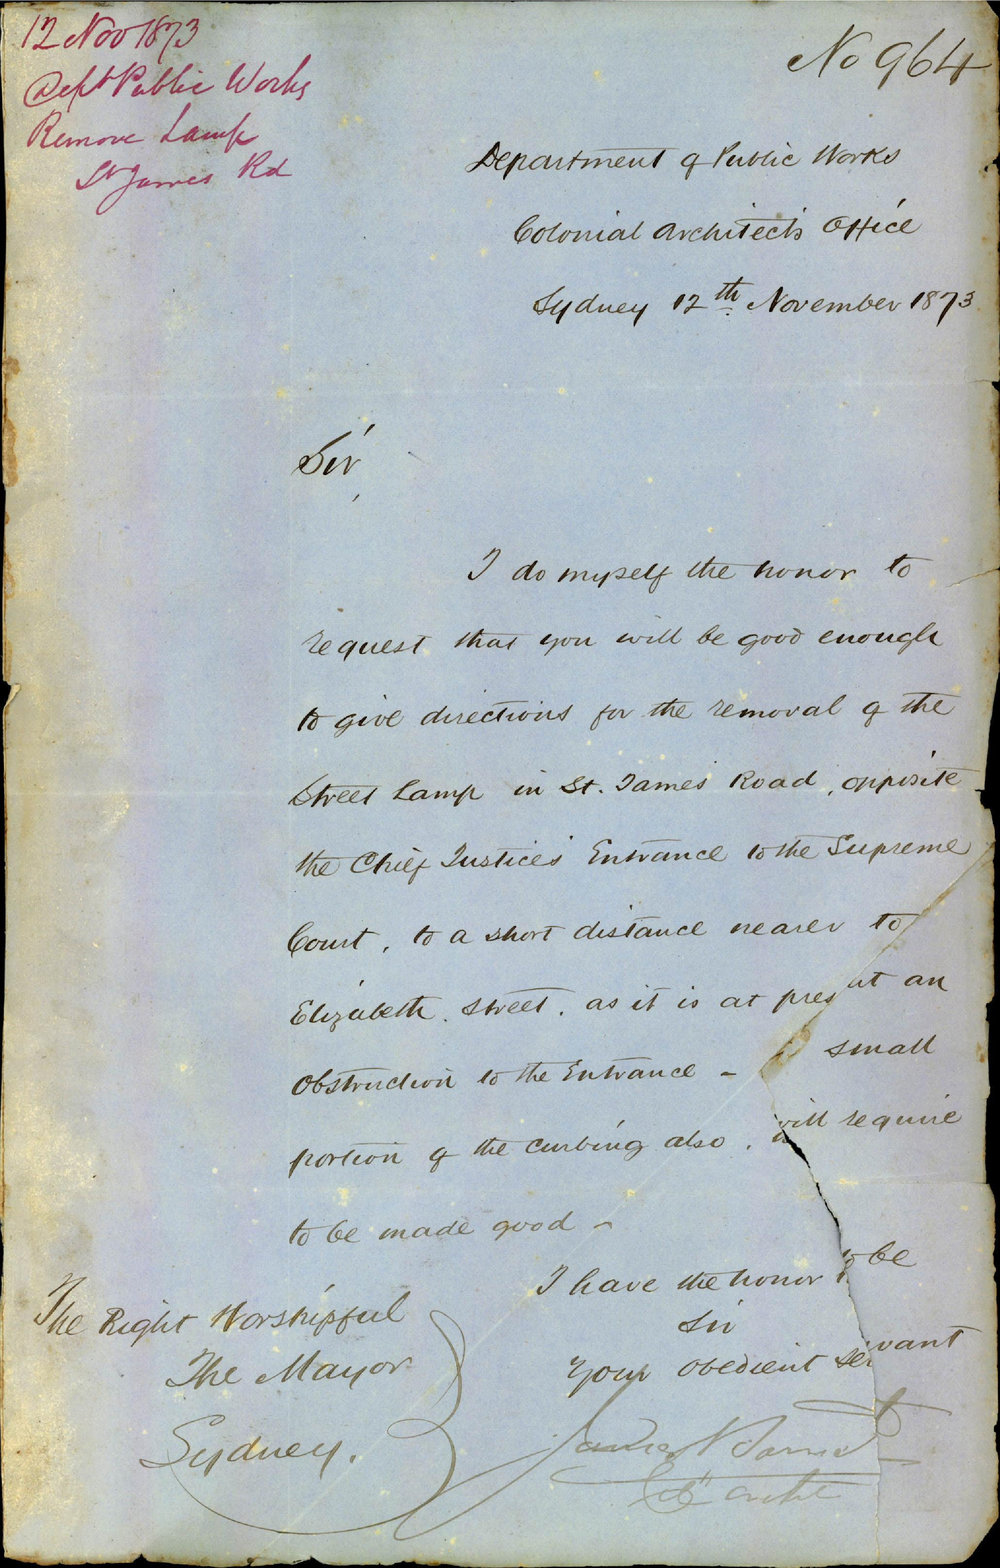 12 Nov 1873
Dept Public Works
Remove Lamp
St James Rd
No 964
Department of Public Works
Colonial Architect's Office
Sydney 12th November 1873
Sir,
I do myself the honor to
request that you will be good enough
to give directions for the removal of the
Street Lamp in St. James' Road, opposite
the Chief Justice's Entrance to the Supreme
Court, to a short distance nearer to
Elizabeth Street, as it is at pres at an
Obstruction to the Entrance – small
portion of the curbing also, will require
to be made good –
I have the honor to be
Sir
Your Obedient Servant
James Barnet
Col Archt
The Right Worshipful
The Mayor
Sydney.